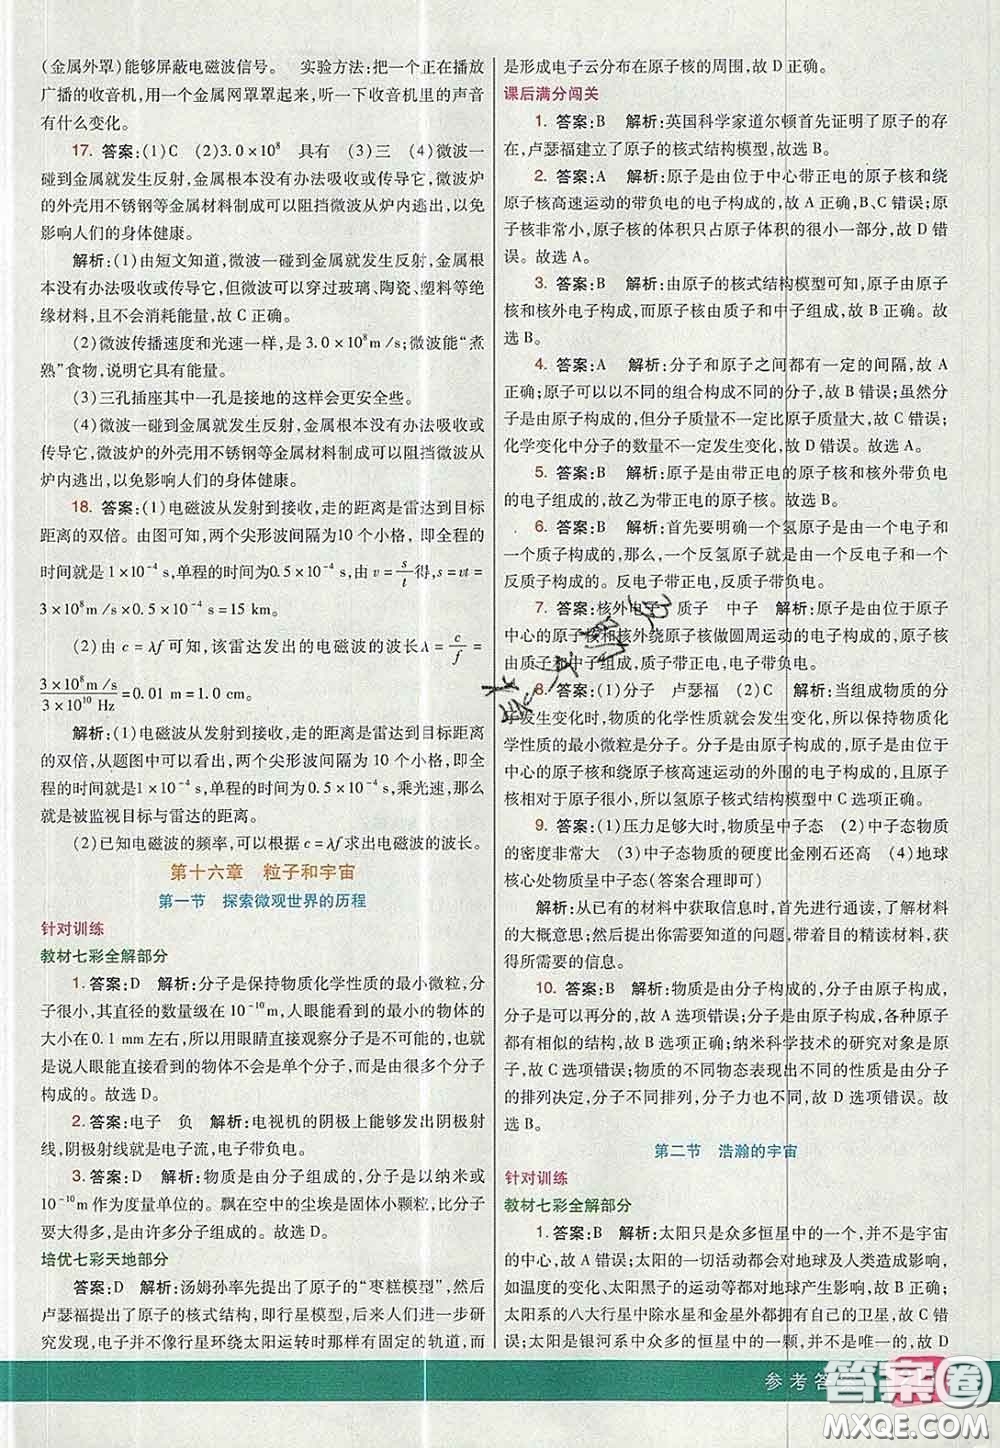 (金属外罩)能够屏蔽电磁波信号。　实验方法:把一个正在播放
广播的收音机,用一个金属网罩罩起来,听一下收音机里的声音
有什么变化。
17. 答案:(1)C　(2)3.0×10⁸　具有　(3)三　(4)微波一
碰到金属就发生反射,金属根本没有办法吸收或传导它,微波炉
的外壳用不锈钢等金属材料制成可以阻挡微波从炉内逃出,以免
影响人们的身体健康。
解析:(1)由短文知道,微波一碰到金属就发生反射,金属根
本没有办法吸收或传导它;但微波可以穿过玻璃、陶瓷、塑料等绝
缘材料,且不会消耗能量,故 C 正确。
(2)微波传播速度和光速一样,是 3.0×10⁸m/s;微波能“煮
熟”食物,说明它具有能量。
(3)三孔插座其中一孔是接地的这样会更安全些。
(4)微波一碰到金属就发生反射,金属根本没有办法吸收或
传导它,微波炉的外壳用不锈钢等金属材料制成可以阻挡微波从
炉内逃出,以免影响人们的身体健康。
18. 答案:(1)电磁波从发射到接收,走的距离是雷达到目标
距离的双倍。由图可知,两个尖形波间隔为10 个小格,即全程的
时间就是 1×10⁻⁴ s,单程的时间为0.5×10⁻⁴ s,由 v=s/t得,s=vt=
3×10⁸m/s×0.5×10⁻⁴ s=15 km。
(2)由 c=λf 可知,该雷达发出的电磁波的波长λ=c/f=
3×10⁸ m/s / 3×10¹⁰ Hz=0.01 m=1.0 cm。
解析:(1)电磁波从发射到接收,走的距离是雷达到目标距离
的双倍,从题图中可以看出,两个尖形波间隔为 10 个小格,即全
程的时间就是 1×10⁻⁴ s,单程的时间为0.5×10⁻⁴ s,乘光速,最后
就是被监视目标与雷达的距离。
(2)已知电磁波的频率,可以根据 c=λf求出电磁波的波长。
第十六章　粒子和宇宙
第一节　探索微观世界的历程
针对训练
教材七彩全解部分
1. 答案:D　解析:分子是保持物质化学性质的最小微粒,分
子很小,其直径的数量级在 10⁻¹⁰m,人眼能看到的最小的物体的
大小在 0.1 mm 左右,所以用眼睛直接观察分子是不可能的,也就
是说人眼能直接看到的物体不会是单个分子,而只会是由分子
构成的。故选 D。
2. 答案:电子　负　解析:电视机的阴极上能够发出阴极射
线,阴极射线就是电子流,电子带负电。
3. 答案:D　解析:物质是由分子组成的,分子是以纳米或
10⁻¹⁰m 作为度量单位的。飘在空中的尘埃是固体小颗粒,比分子
要大得多,是由许多分子组成的。故选 D。
培优七彩天地部分
答案:D　解析:汤姆孙率先提出了原子的“枣糕模型”,然后
卢瑟福提出了原子的核式结构,即行星模型,后来人们进一步研
究发现,电子并不像行星环绕太阳运转时那样有固定的轨道,而
是形成电子云分布在原子核的周围,故 D 正确。
课后满分闯关
1. 答案:B　解析:英国科学家道尔顿首先证明了原子的存
在,卢瑟福建立了原子的核式结构模型,故选 B。
2. 答案:A　解析:原子是由位于中心带正电的原子核和绕
原子核高速运动的带负电的电子构成的,故 A 正确,B、C 错误;原
子核非常小,原子核的体积只占原子体积的很小一部分,故 D 错
误。故选 A。
3. 答案:B　解析:由原子的核式结构模型可知,原子由原子
核和核外电子构成,而原子核由质子和中子组成,故 B 正确。故
选 B。
4. 答案:A　解析:分子和原子之间都有一定的间隔,故 A
正确;原子可以以不同的组合构成不同的分子,故 B 错误;虽然分
子是由原子构成的,但分子质量不一定比原子质量大,故 C 错误;
化学变化中分子的数量不一定发生变化,故 D 错误。故选 A。
5. 答案:B　解析:原子是由带正电的原子核和核外带负电
的电子组成的,故乙为带正电的原子核。故选 B。
6. 答案:B　解析:首先要明确一个氢原子是由一个电子和
一个质子构成的,那么,一个反氢原子就是由一个反电子和一个
反质子构成的。反电子带正电,反质子带负电。
7. 答案:核外电子　质子　中子　解析:原子是由位于原子
中心的原子核和核外绕原子核做圆周运动的电子构成的,原子核
由质子和中子组成,质子带正电,中子不带电。
8. 答案:(1)分子　卢瑟福　(2)C　解析:当组成物质的分
子发生变化时,物质的化学性质就会发生变化,所以保持物质化
学性质的最小微粒是分子。分子是由原子构成的,原子是由中心
的原子核和绕原子核高速运动的外围的电子构成的,而且原子核
相对于原子很小,所以氢原子核式结构模型中 C 选项正确。
9. 答案:(1)压力足够大时,物质呈中子态　(2)中子态物质
的密度非常大　(3)中子态物质的硬度比金刚石还高　(4)地球
核心处物质呈中子态(答案合理即可)
解析:从已有的材料中获取信息时,首先进行通读,了解材料
的大概意思;然后提出你需要知道的问题,带着目的精读材料,获
得所需要的信息。
10. 答案:B　解析:物质是由分子构成,分子由原子构成,分
子是可以再分的,故 A 选项错误;分子是由原子构成,各种原子都
有相似的结构,故 B 选项正确;纳米科学技术的研究对象是原子
或分子,故 C 选项错误;物质的不同物态主要是由其中构成分子
的排列决定,分子排列不同,状态也不同,故 D 选项错误。故
选 B。
第二节　浩瀚的宇宙
针对训练
教材七彩全解部分
1. 答案:B　解析:太阳只是众多恒星中的一个,并不是宇宙
的中心,故 A 错误;太阳的一切活动都会对地球及人类造成影响,
如温度的变化、太阳黑子的运动等都对地球产生影响,故 B 正确;
太阳系的八大行星中除水星和金星外都拥有自己的卫星,故 C 错
误;太阳是银河系中众多的恒星中的一颗,并不是唯一的,故 D
参考答
答案圈
MXQE.COM